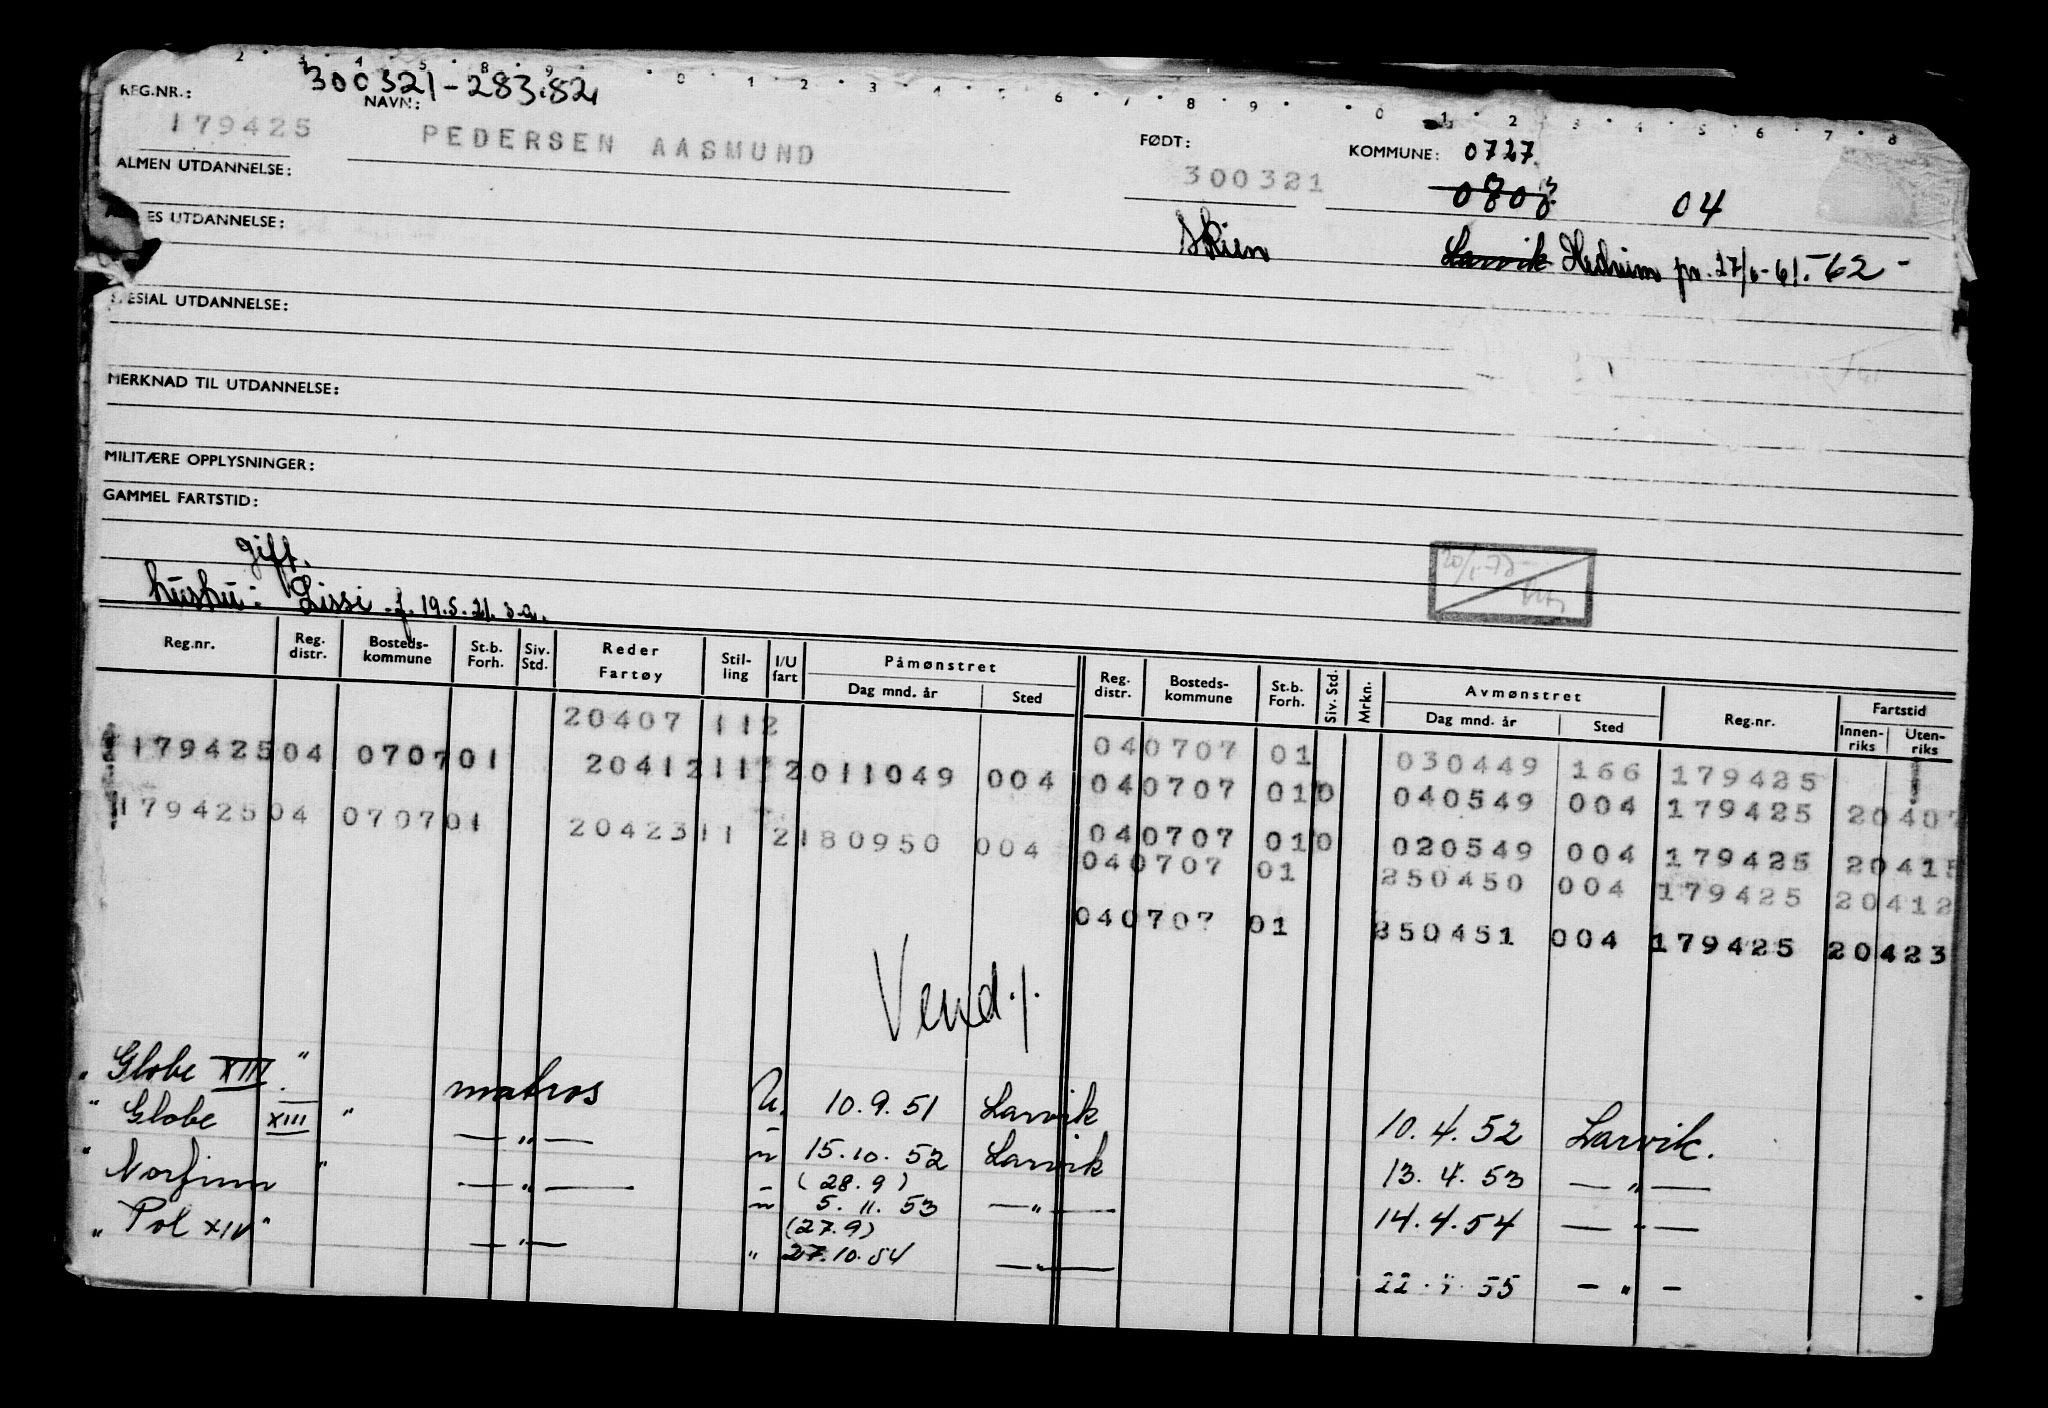 2 3 4 5 8 9 0 1 2 3 4 5 6 7 8 9 0 1 2 3 4 5 6 7 8
REG.NR.: 300321-283.82
NAVN:
179425 PEDERSEN AASMUND
FØDT: KOMMUNE: 0727
300321
ALMEN UTDANNELSE:
04
ES UTDANNELSE:
Skien Larvik Hedrum pr. 27/6-61.-62-
SPESIAL UTDANNELSE:
MERKNAD TIL UTDANNELSE:
MILITÆRE OPPLYSNINGER:
GAMMEL FARTSTID:
gift.
hustru: Lissi f. 19.5.21. s.a.
Reg.nr. Reg. distr. Bosteds-kommune St.b. Forh. Siv. Std. Reder Fartøy Stil-ling I/U fart Påmønstret Dag mnd. år Sted Reg. distr. Bosteds-kommune St.b. Forh. Siv. Std. Mrkn. Avmønstret Dag mnd. år Sted Reg.nr. Fartstid Innen-riks Uten-riks
20407 112
040707 01 030449 166 179425
179425 04 0707 01 20412 11 2 011049 004
040707 01 0 040549 004 179425 20407
179425 04 0707 01 20423 11 2 180950 004
040707 01 0 020549 004 179425 20415
040707 01 250450 004 179425 20412
040707 01 250451 004 179425 20423
Vend ./.
" Globe XIII. " matros U. 10.9.51 Larvik 10.4.52 Larvik.
" Globe XIII " — " — " 15.10.52 Larvik 13.4.53 — " —
(28.9)
" Norfinn " — " — " 5.11.53 — " — 14.4.54 — " —
(27.9)
" Pol XIV " — " — " 27.10.54 — " — 22.4.55 — " —